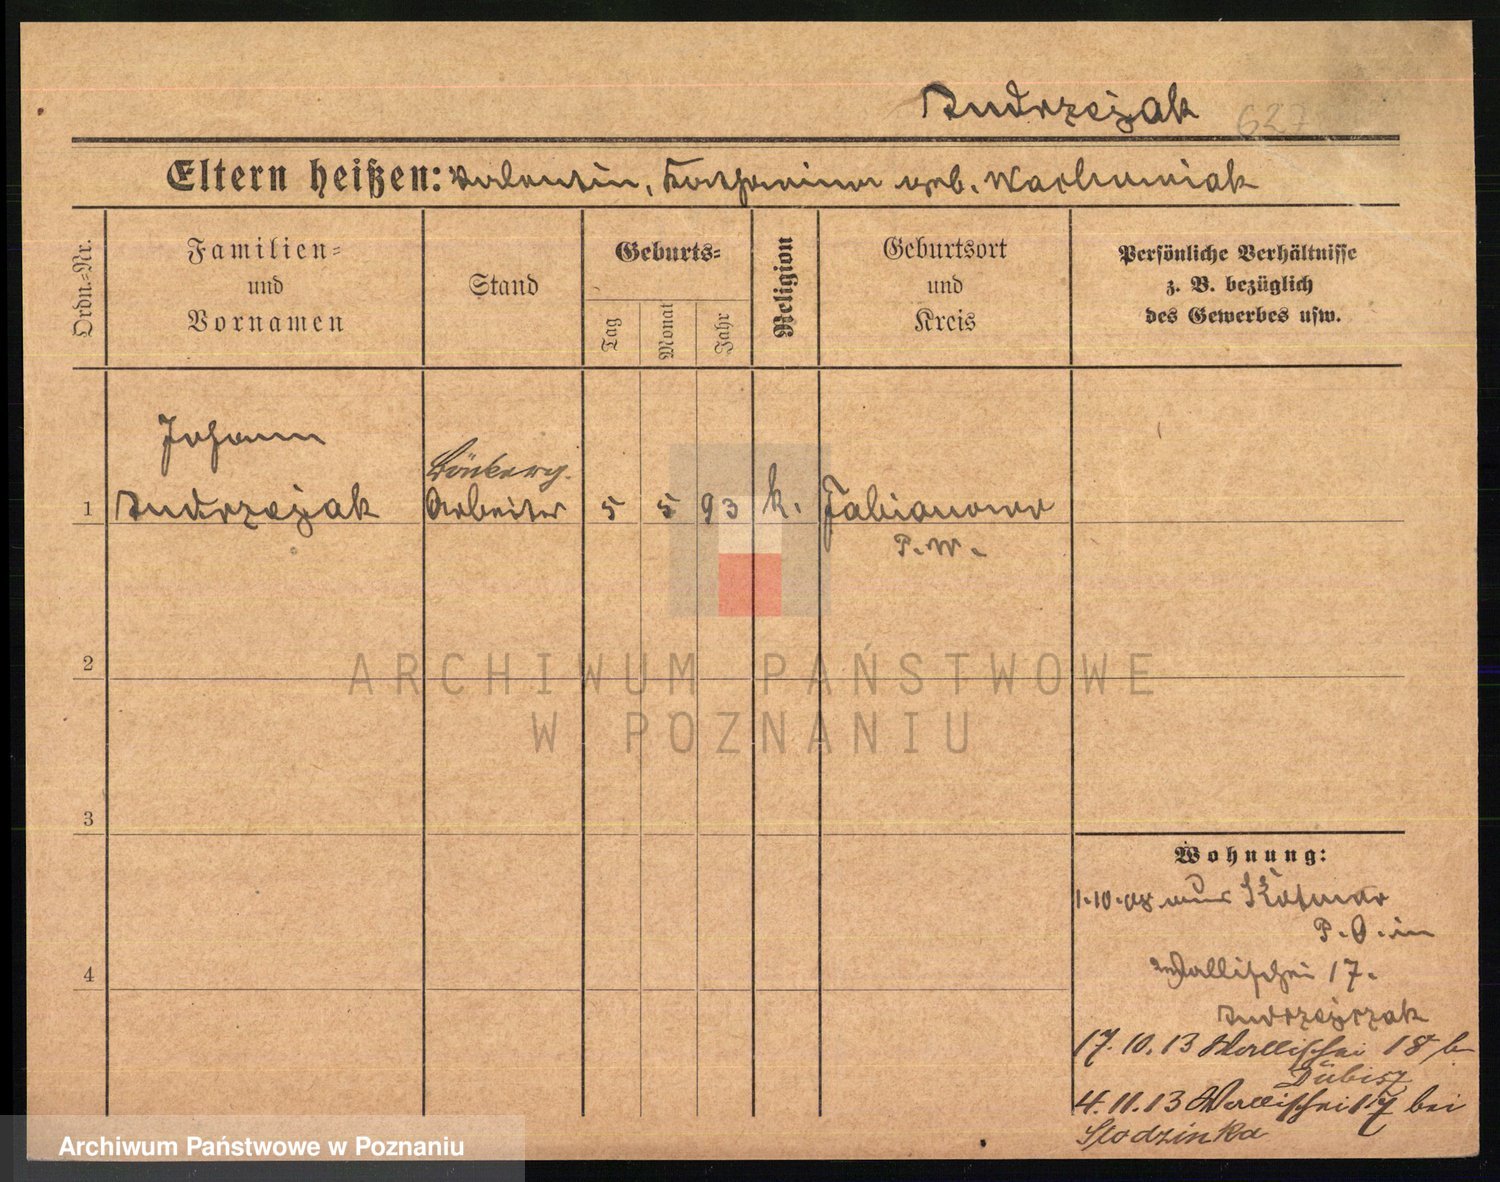 Andrzejak 627
Eltern heißen: Valentin, Katharina geb. Wachowiak
Ordn.-Nr.
Familien-
und
Vornamen
Stand
Geburts-
Tag
Monat
Jahr
Religion
Geburtsort
und
Kreis
Persönliche Verhältnisse
z. B. bezüglich
des Gewerbes usw.
Johann
1 Andrzejak Arbeiter 5 5 93 k. Fabianowo
P. W.
2
ARCHIWUM PAŃSTWOWE
W POZNANIU
3
Wohnung:
1.10.08 aus
P. O. in
4
Wallischei 17.
Andrzejczak
17.10.13 Wallischei 18 b
Dübisz
4.11.13 Wallischei 17 bei
Stodzinka
Archiwum Państwowe w Poznaniu